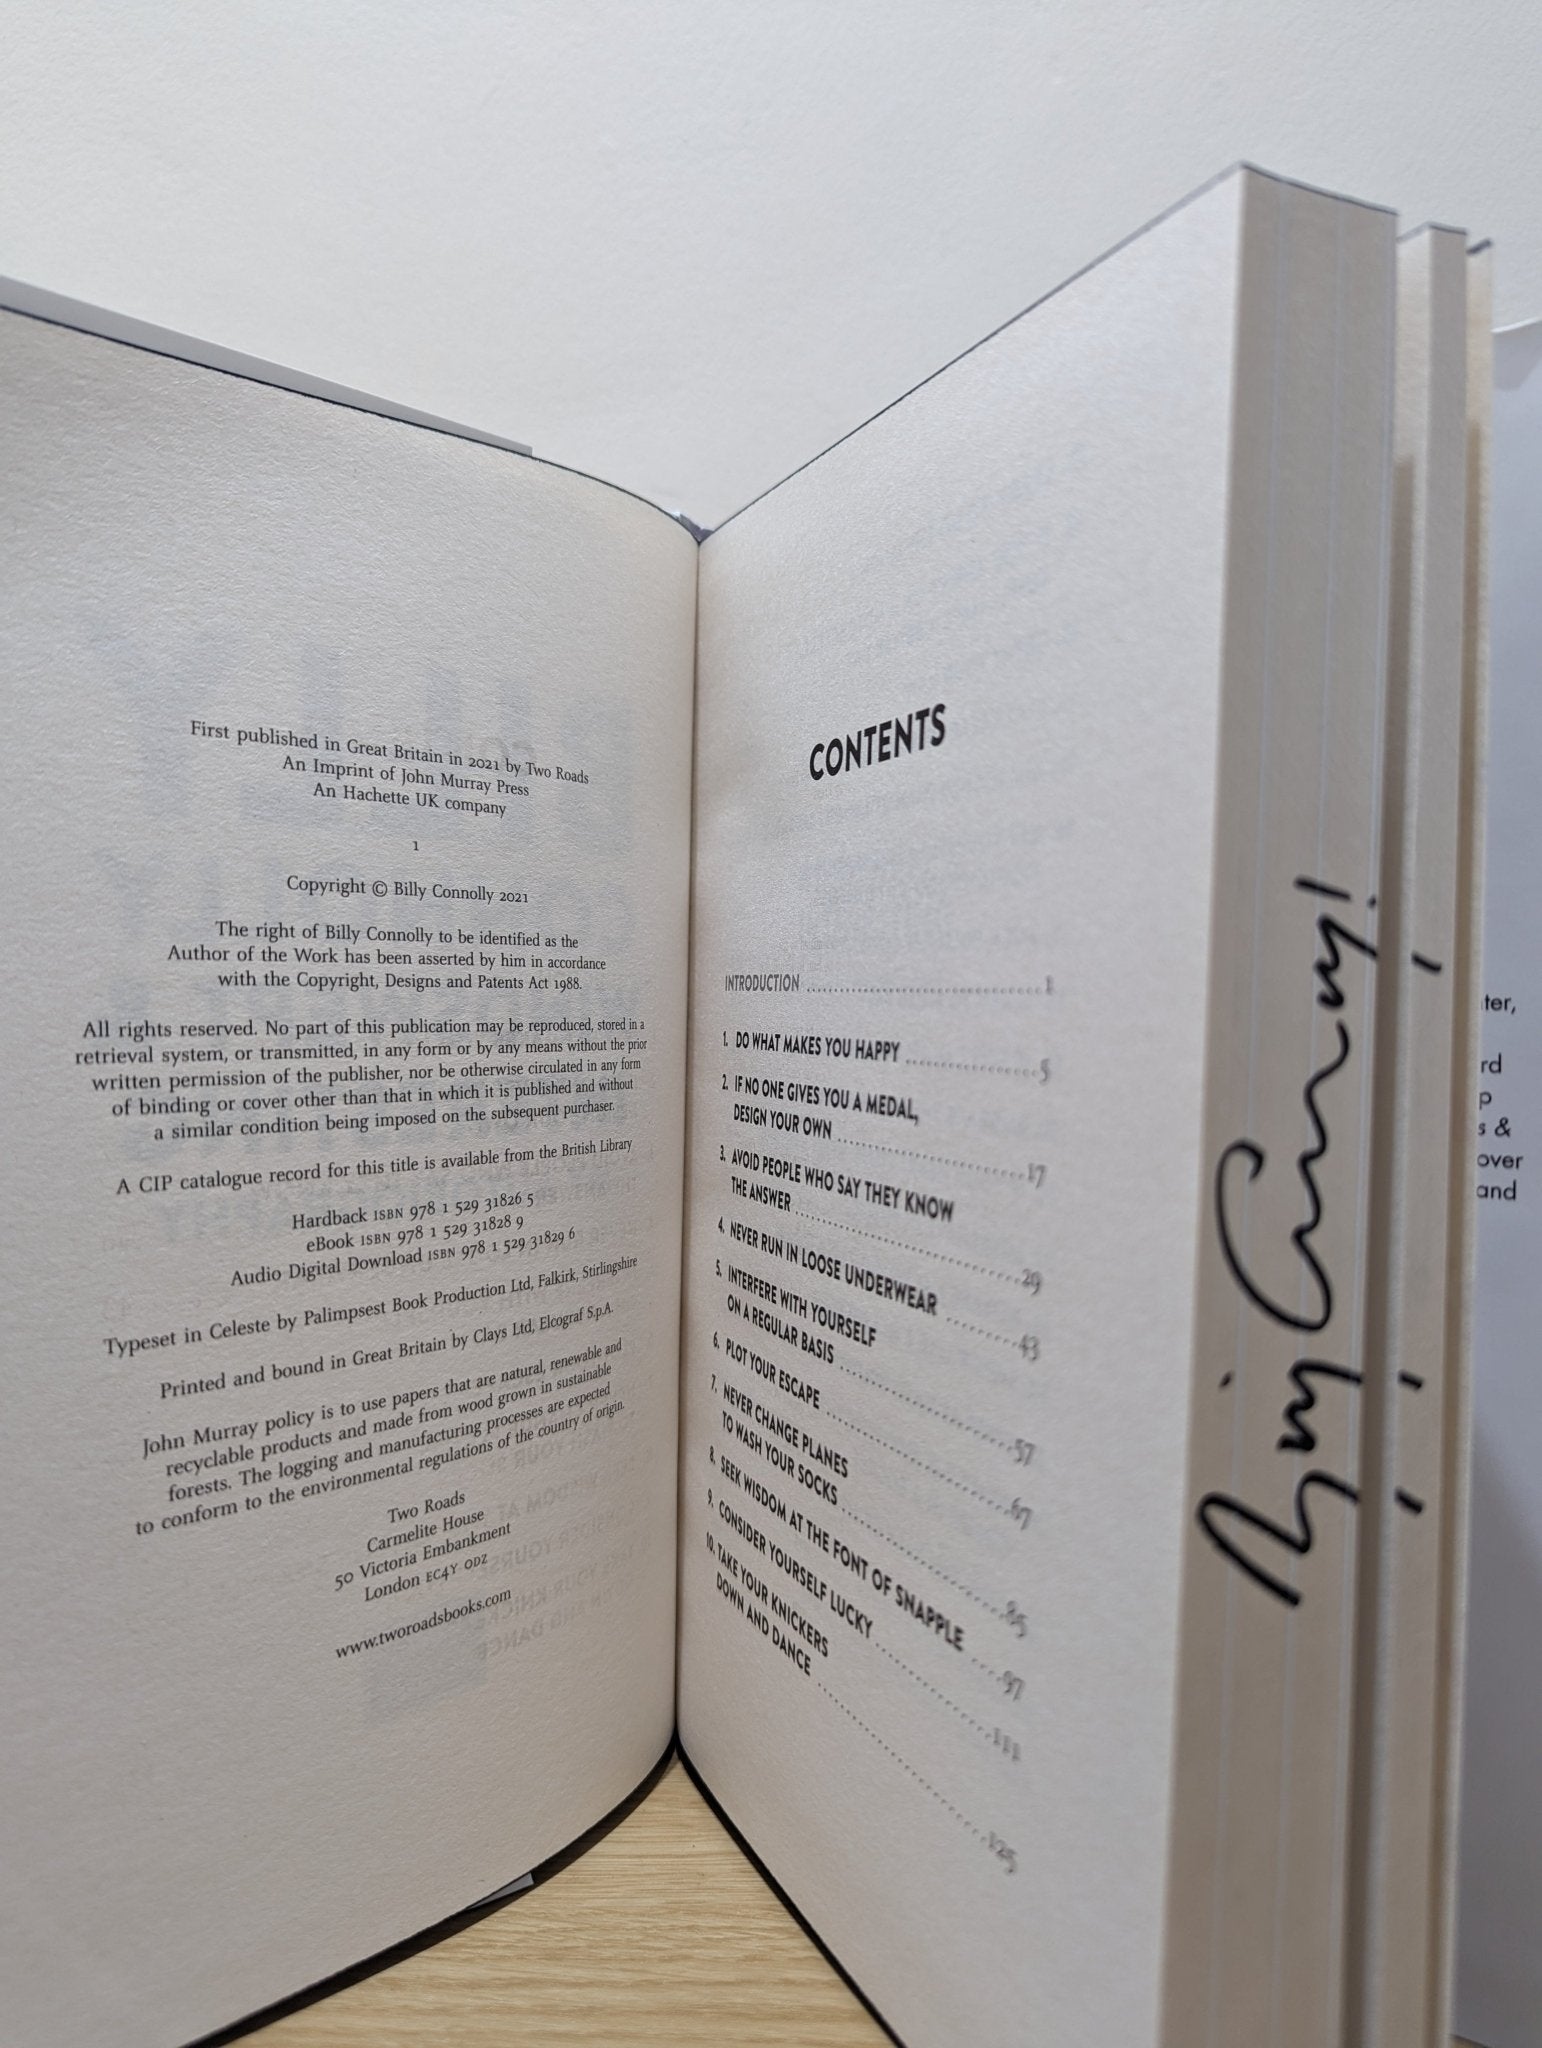 First published in Great Britain in 2021 by Two Roads
An Imprint of John Murray Press
An Hachette UK company
1
Copyright © Billy Connolly 2021
The right of Billy Connolly to be identified as the
Author of the Work has been asserted by him in accordance
with the Copyright, Designs and Patents Act 1988.
All rights reserved. No part of this publication may be reproduced, stored in a
retrieval system, or transmitted, in any form or by any means without the prior
written permission of the publisher, nor be otherwise circulated in any form
of binding or cover other than that in which it is published and without
a similar condition being imposed on the subsequent purchaser.
A CIP catalogue record for this title is available from the British Library
Hardback ISBN 978 1 529 31826 5
eBook ISBN 978 1 529 31828 9
Audio Digital Download ISBN 978 1 529 31829 6
Typeset in Celeste by Palimpsest Book Production Ltd, Falkirk, Stirlingshire
Printed and bound in Great Britain by Clays Ltd, Elcograf S.p.A.
John Murray policy is to use papers that are natural, renewable and
recyclable products and made from wood grown in sustainable
forests. The logging and manufacturing processes are expected
to conform to the environmental regulations of the country of origin.
Two Roads
Carmelite House
50 Victoria Embankment
London EC4Y 0DZ
www.tworoadsbooks.com
CONTENTS
INTRODUCTION ........ 1
1. DO WHAT MAKES YOU HAPPY ........ 5
2. IF NO ONE GIVES YOU A MEDAL,
DESIGN YOUR OWN ........ 17
3. AVOID PEOPLE WHO SAY THEY KNOW
THE ANSWER ........ 29
4. NEVER RUN IN LOOSE UNDERWEAR ........ 43
5. INTERFERE WITH YOURSELF
ON A REGULAR BASIS ........ 57
6. PLOT YOUR ESCAPE ........ 67
7. NEVER CHANGE PLANES
TO WASH YOUR SOCKS ........ 85
8. SEEK WISDOM AT THE FONT OF SNAPPLE ........ 97
9. CONSIDER YOURSELF LUCKY ........ 111
10. TAKE YOUR KNICKERS
DOWN AND DANCE ........ 125
ter,
rd
p
s &
over
and